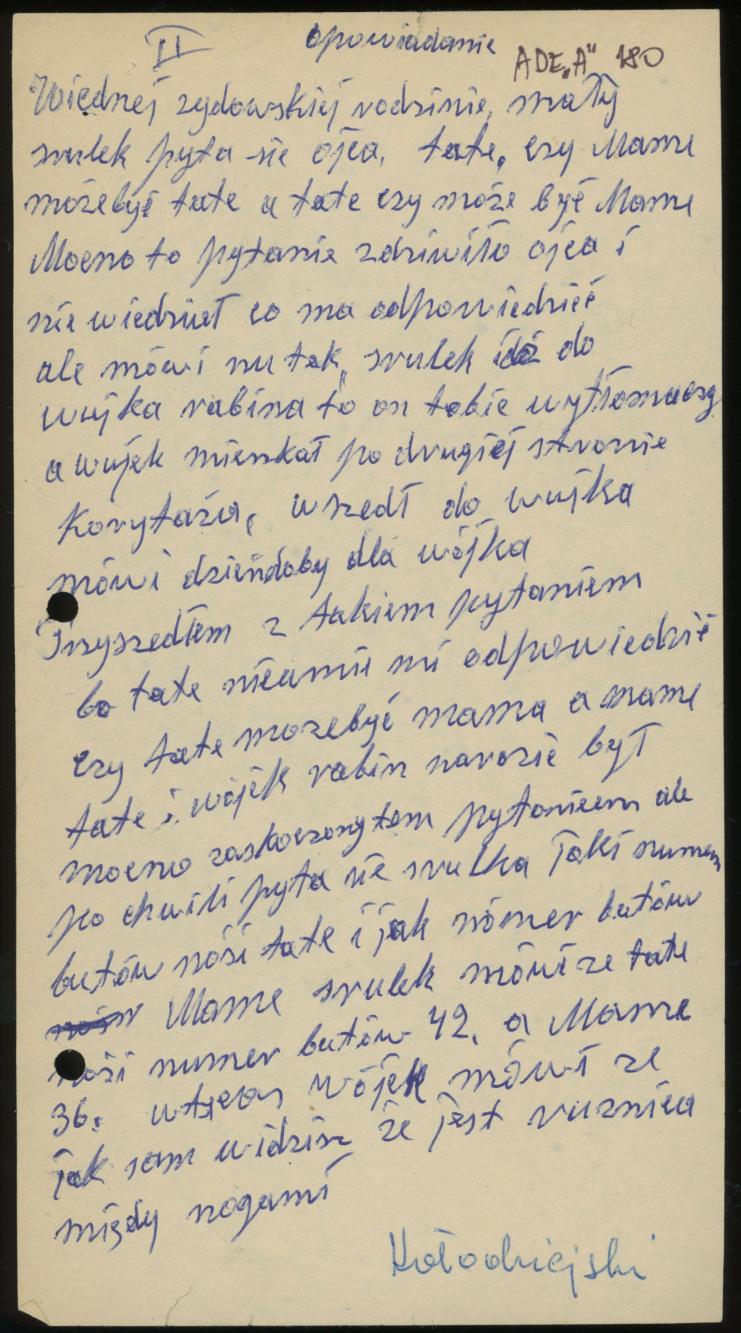 II opowiadanie ADE„A" 180
Wiednej zydowskiej rodzinie, mały
srulek pyta sie ojca, tate, czy Mame
możebyć tate a tate czy może być Mame
Mocno to pytanie zdziwiło ojca i
nie wiedział co ma odpowiedzieć
ale mówi nu tak, srulek idź do
wujka rabina to on tobie wytłomaczy
a wujek mieszkał po drugiej stronie
Korytaża, wszedł do wujka
mówi dzieńdoby dla wójka
Przyszedłem z takiem pytaniem
bo tate nieumie mi odpowiedzić
czy tate mozebyć mama a mame
tate i wójek rabin narazie był
mocno zaskoczony tem pytanieem ale
po chwili pyta sie srulka jaki numer
butów nósi tate i jak nómer butów
Mame srulek mówi ze tate
nosi numer butów 42, a Mame
36. wtzas wójek mówi ze
jak sam widzisz że jest ruznica
między nogami
Kołodziejski